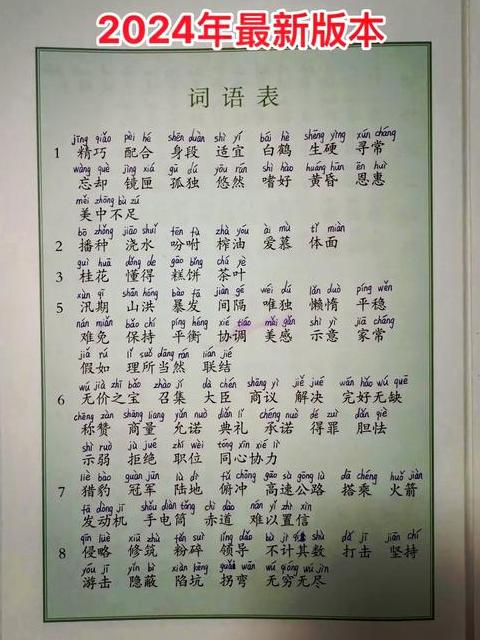 2024年最新版本
词语表
jīng qiǎo pèi hé shēn duàn shì yí bái hè shēng yìng xún cháng
1 精巧 配合 身段 适宜 白鹤 生硬 寻常
wàng què jìng xiá gū dú yōu rán shì hào huáng hūn ēn huì
忘却 镜匣 孤独 悠然 嗜好 黄昏 恩惠
měi zhōng bù zú
美中不足
bō zhǒng jiāo shuǐ fēn fù zhà yóu ài mù tǐ miàn
2 播种 浇水 吩咐 榨油 爱慕 体面
guì huā dǒng de gāo bǐng chá yè
3 桂花 懂得 糕饼 茶叶
xùn qī shān hóng bào fā jiàn gé wéi dú lǎn duò píng wěn
5 汛期 山洪 暴发 间隔 唯独 懒惰 平稳
nán miǎn bǎo chí píng héng xié tiáo měi gǎn shì yì jiā cháng
难免 保持 平衡 协调 美感 示意 家常
jiǎ rú lǐ suǒ dāng rán lián jié
假如 理所当然 联结
wú jià zhī bǎo zhào jí dà chén shāng yì jiě jué wán hǎo wú quē
6 无价之宝 召集 大臣 商议 解决 完好无缺
chēng zàn shāng liang yǔn nuò diǎn lǐ chéng nuò dé zuì dǎn qiè
称赞 商量 允诺 典礼 承诺 得罪 胆怯
shì ruò jù jué zhí wèi tóng xīn xié lì
示弱 拒绝 职位 同心协力
liè bào guàn jūn lù dì fǔ chōng gāo sù gōng lù dā chéng huǒ jiàn
7 猎豹 冠军 陆地 俯冲 高速公路 搭乘 火箭
fā dòng jī shǒu diàn tǒng chì dào nán yǐ zhì xìn
发动机 手电筒 赤道 难以置信
qīn lüè xiū zhù fěn suì lǐng dǎo bù jì qí shù dǎ jī jiān chí
8 侵略 修筑 粉碎 领导 不计其数 打击 坚持
yóu jī yǐn bì xiàn kēng guǎi wān wú qióng wú jìn
游击 隐蔽 陷坑 拐弯 无穷无尽